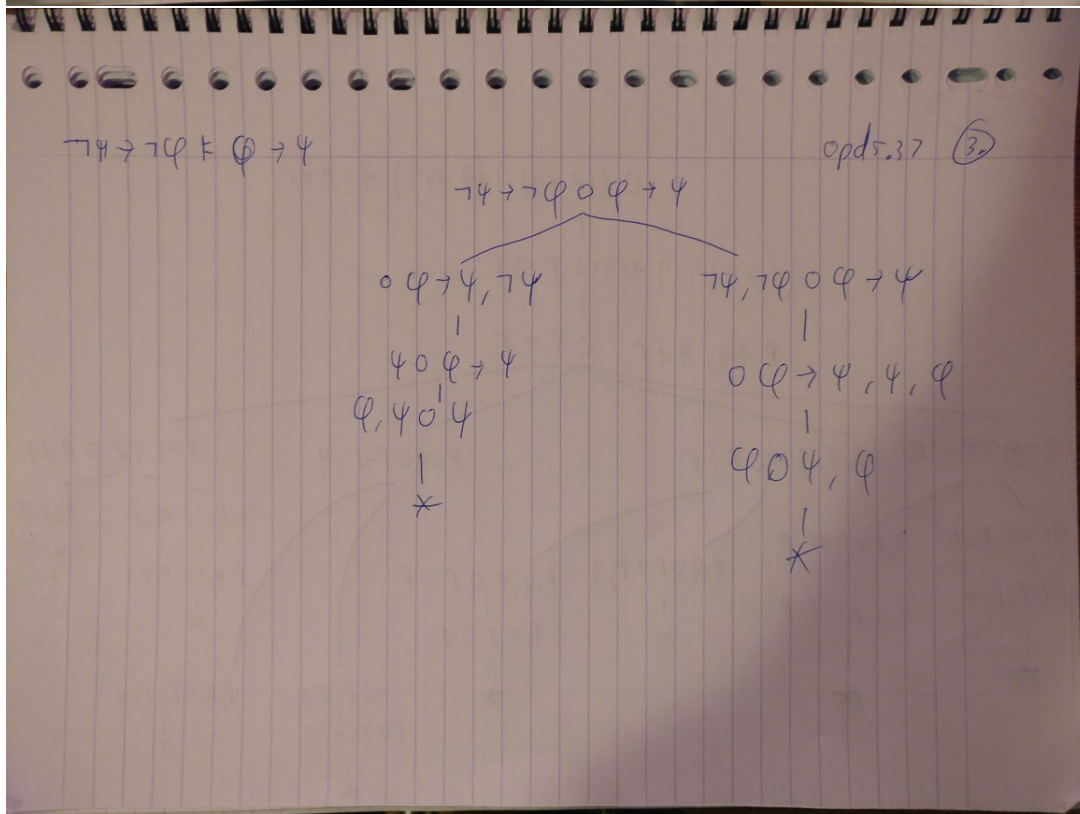 ¬ψ→¬φ ⊨ φ→ψ opd5.37 ③.
¬ψ→¬φ ○ φ→ψ
○ φ→ψ, ¬ψ ¬ψ, ¬φ ○ φ→ψ
ψ ○ φ→ψ ○ φ→ψ, ψ, φ
φ, ψ ○ ψ
φ ○ ψ, φ
*
*